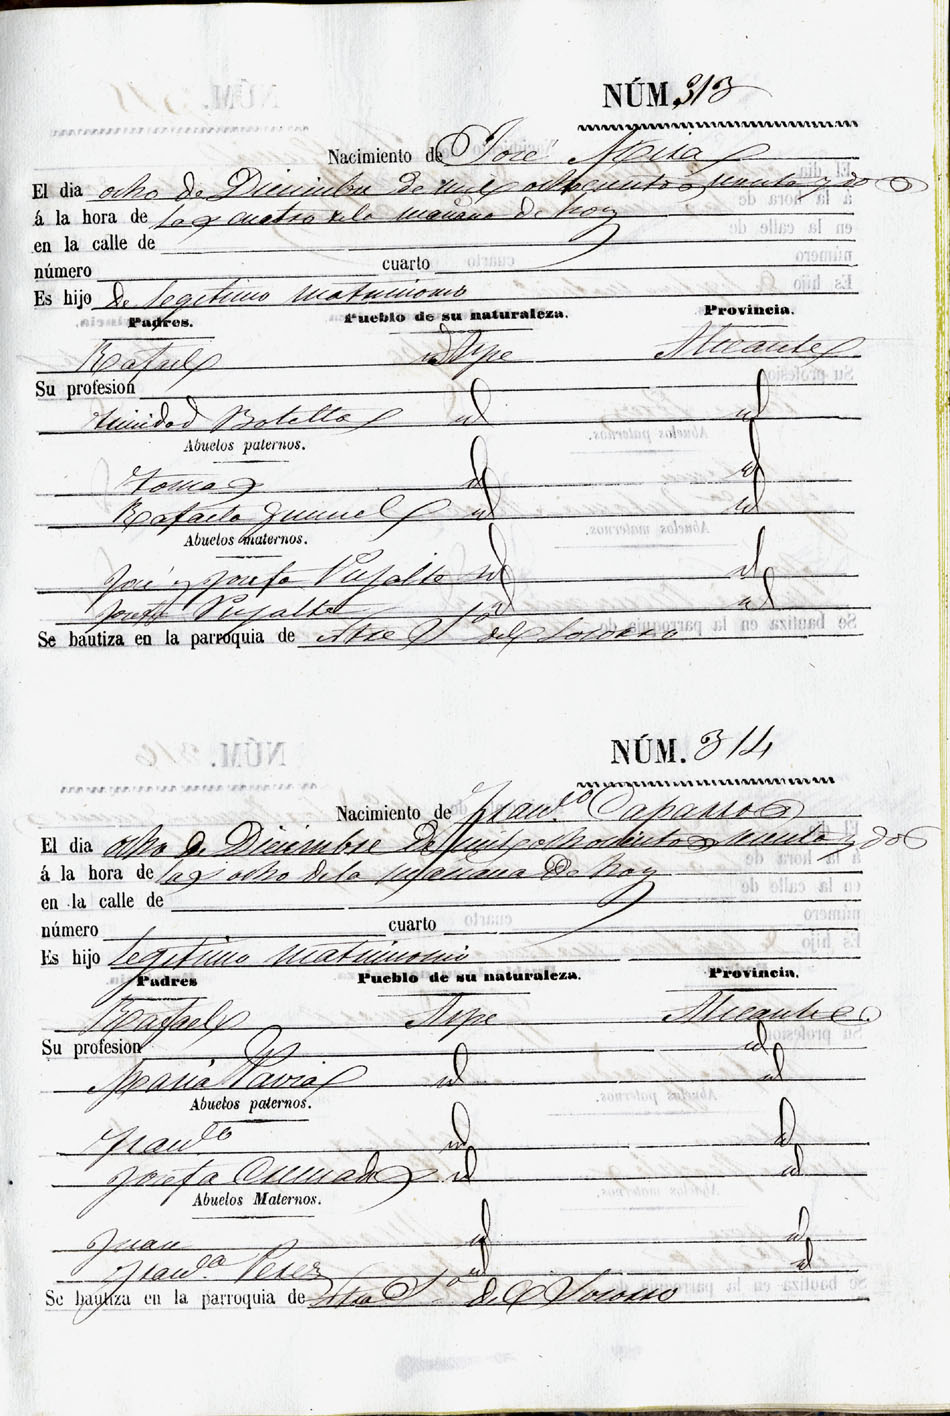 NÚM. 313
Nacimiento de José
El dia ocho de Diciembre de mil ochocientos y dos
á la hora de las cuatro de la mañana de hoy
en la calle de
número cuarto
Es hijo de legitimo matrimonio
Padres. Pueblo de su naturaleza. Provincia.
Rafael Aspe Alicante
Su profesion
Trinidad Botella id id
Abuelos paternos.
Tomas id id
Rafaela id id
Abuelos maternos.
José y Josefa Pujalte id id
Josefa Pujalte id id
Se bautiza en la parroquia de Ntra Sra del Socorro
NÚM. 314
Nacimiento de Franco Caparros
El dia ocho de Diciembre de mil ochocientos y dos
á la hora de las ocho de la mañana de hoy
en la calle de
número cuarto
Es hijo legitimo matrimonio
Padres Pueblo de su naturaleza. Provincia.
Rafael Aspe Alicante
Su profesion id
Maria Pavia id id
Abuelos paternos.
Franco id id
Josefa id id
Abuelos Maternos.
Juan id id
Franca Perez id id
Se bautiza en la parroquia de Ntra Sra del Socorro